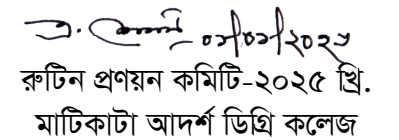 ০১/০১/২০২৫
রুটিন প্রণয়ন কমিটি-২০২৫ খ্রি.
মাটিকাটা আদর্শ ডিগ্রি কলেজ